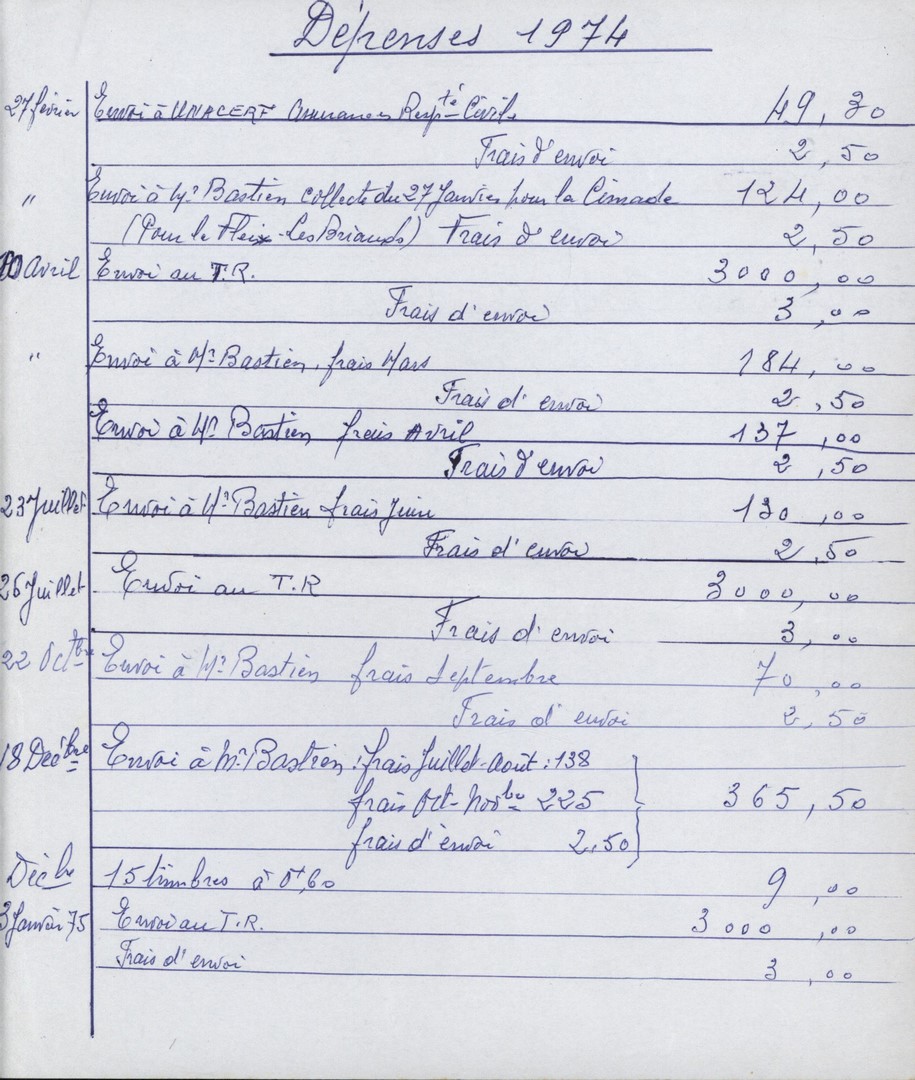 Dépenses 1974
27 février Envoi à UNACERF Assurances Respté Civile 49,30
Frais d'envoi 2,50
" Envoi à Mr Bastien collecte du 27 Janvier pour la Cimade 124,00
(Pour le Fleix - Les Briands) Frais d'envoi 2,50
10 Avril Envoi au T.R. 3000,00
Frais d'envoi 3,00
" Envoi à Mr Bastien, frais Mars 184,00
Frais d'envoi 2,50
Envoi à Mr Bastien frais Avril 137,00
Frais d'envoi 2,50
23 Juillet Envoi à Mr Bastien frais Juin 130,00
Frais d'envoi 2,50
26 Juillet Envoi au T.R 3000,00
Frais d'envoi 3,00
22 Octbre Envoi à Mr Bastien frais Septembre 70,00
Frais d'envoi 2,50
18 Decbre Envoi à Mr Bastien : frais Juillet-Août : 138
frais Oct-Novbre 225 365,50
frais d'envoi 2,50
Décbre 15 timbres à 0f,60 9,00
3 Janvier 75 Envoi au T.R. 3000,00
Frais d'envoi 3,00